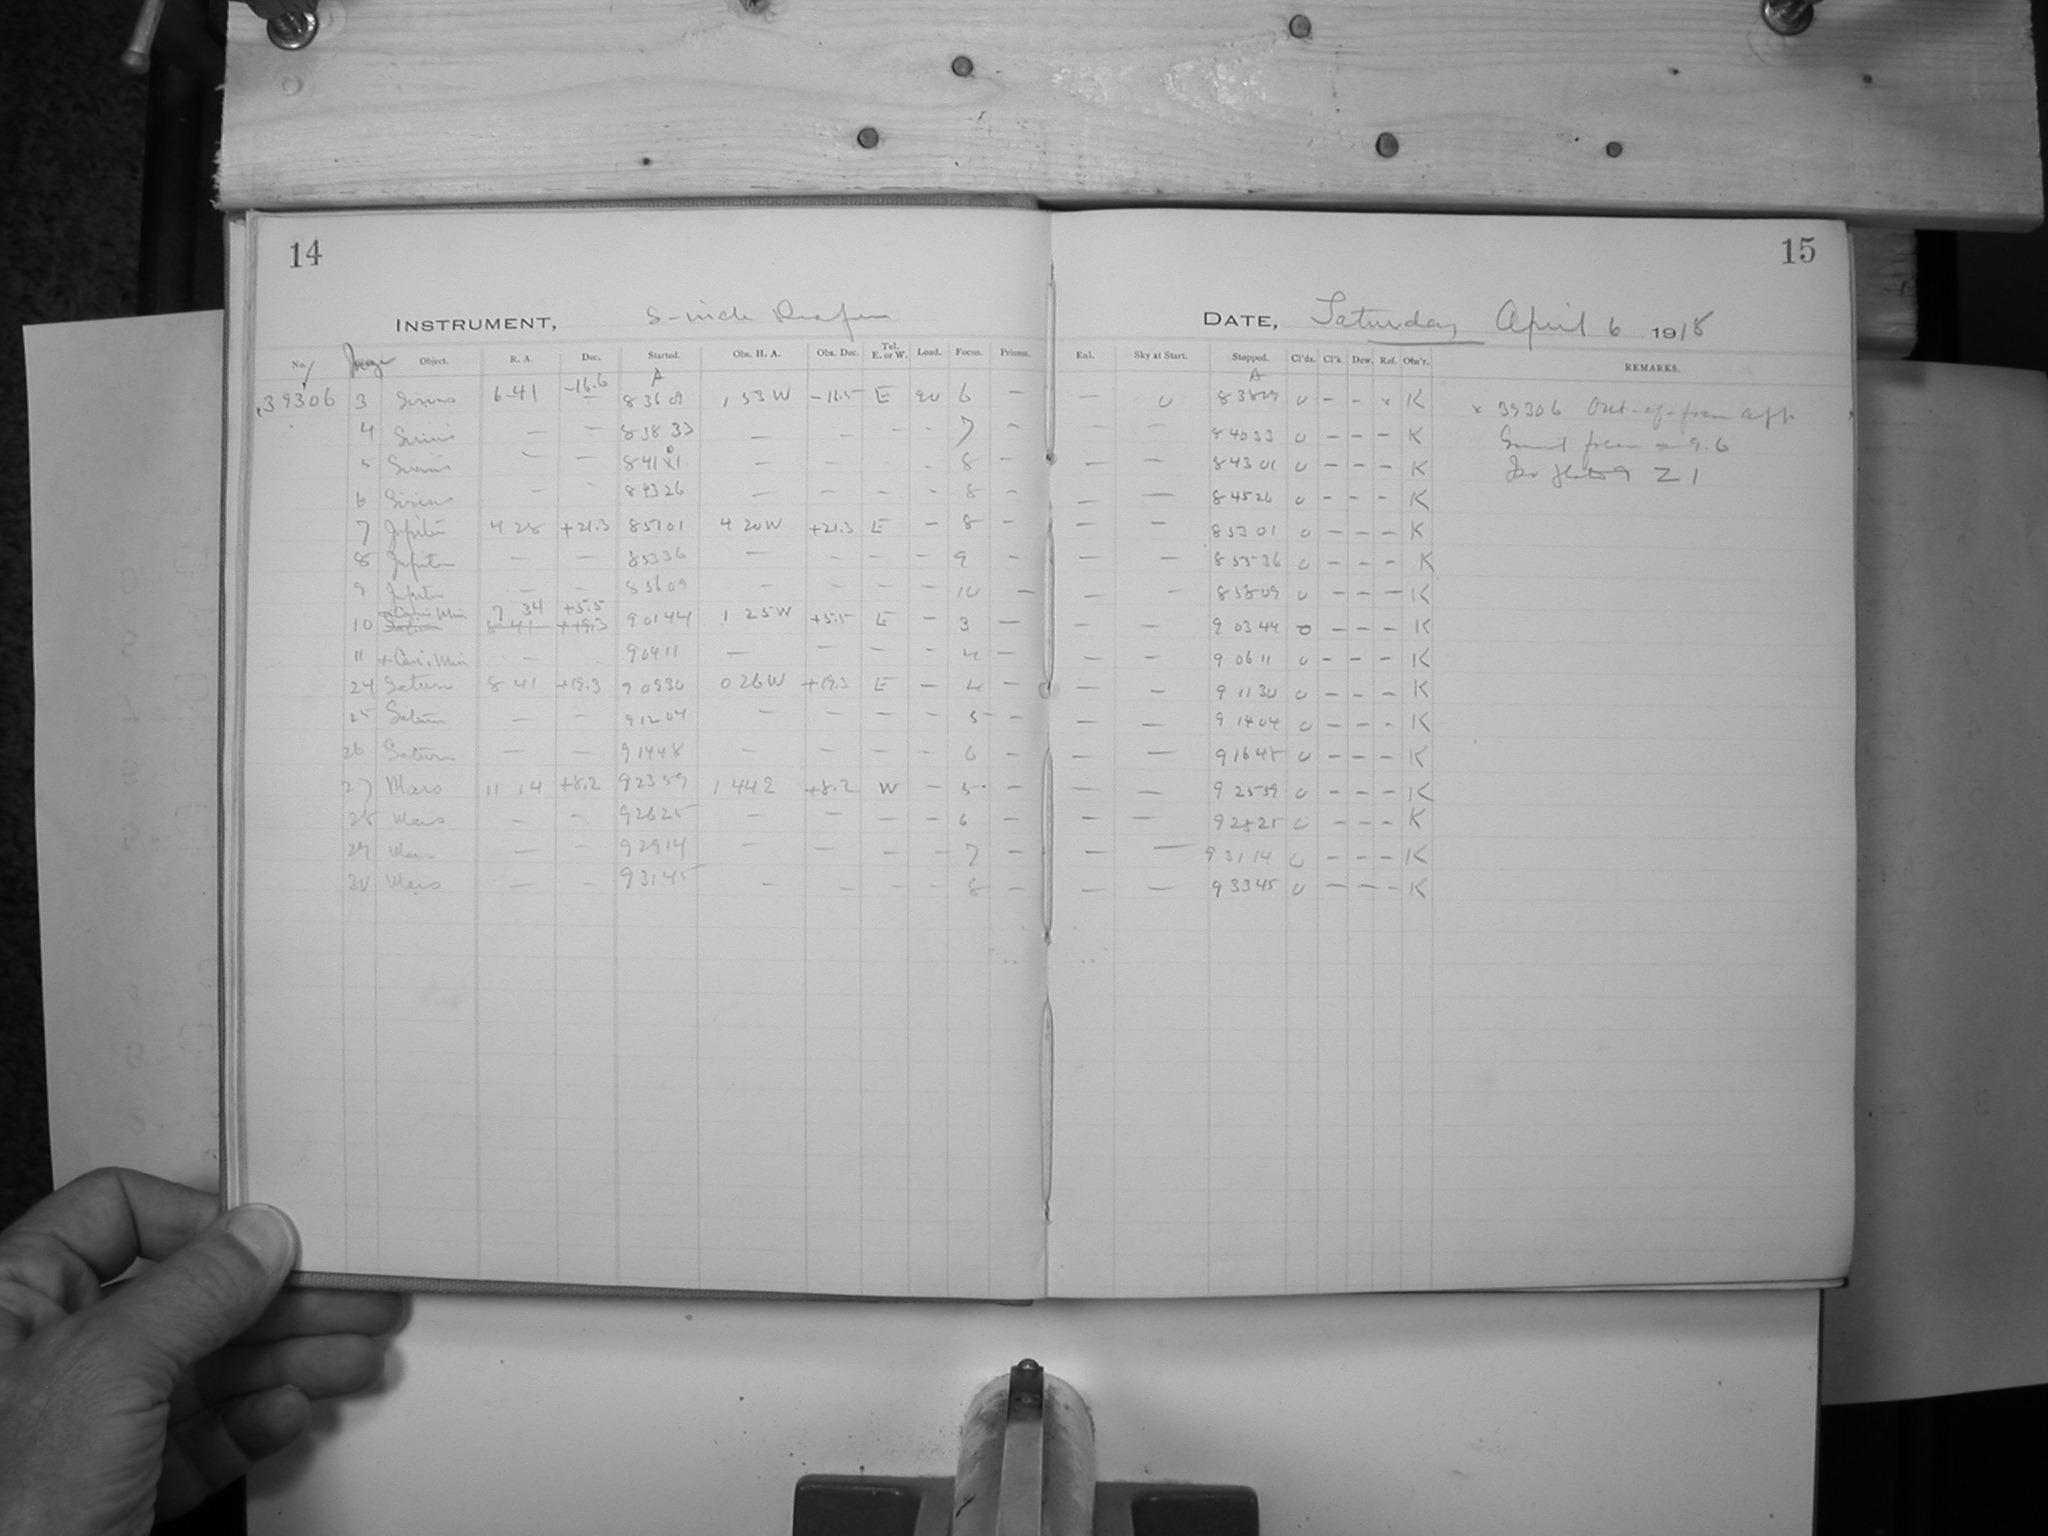 14
15
INSTRUMENT, 8-inch
DATE, Saturday April 6 1918
No. Image Object. R. A. Dec. Started. Obs. H. A. Obs. Dec. Tel. E. or W. Load. Focus. Prisms. Enl. Sky at Start. Stopped. Cl'ds. Cl'k. Dew. Ref. Obs'r. REMARKS.
A A
39306 3 Sirius 6 41 -16.6 8 36 09 1 53 W -16.5 E 90 6 — — 0 8 38 09 0 - - x K x 39306 Out-of-focus
4 Sirius — — 8 38 33 — — - - 7 — — — 8 40 33 0 - - - K focus = 9.6
5 Sirius — — 8 41 01 — — - - 8 — — — 8 43 01 0 - - - K Z 1
6 Sirius — — 8 43 26 — — - - 8 — — — 8 45 26 0 - - - K
7 Jupiter 4 28 +21.3 8 51 01 4 20 W +21.3 E — 8 — — — 8 53 01 0 - - - K
8 Jupiter — — 8 53 36 — — — — 9 — — — 8 55 36 0 - - - K
9 Jupiter — — 8 56 09 — — — — 10 — — — 8 58 09 0 - - - K
Cani. Min 7 34 +5.5
10 Saturn 8 41 +19.3 9 01 44 1 25 W +5.5 E — 3 — — — 9 03 44 0 - - - K
11 Cani. Min — — 9 04 11 — — — — 4 — — — 9 06 11 0 - - - K
24 Saturn 8 41 +19.3 9 09 30 0 26 W +19.3 E — 4 — — — 9 11 30 0 - - - K
25 Saturn — — 9 12 04 — — — — 5 — — — 9 14 04 0 - - - K
26 Saturn — — 9 14 48 — — — — 6 — — — 9 16 48 0 - - - K
27 Mars 11 14 +8.2 9 23 59 1 44 E +8.2 W — 5 — — — 9 25 59 0 - - - K
28 Mars — — 9 26 25 — — — — 6 — — — 9 28 25 0 - - - K
29 Mars — — 9 29 14 — — — — 7 — — — 9 31 14 0 - - - K
30 Mars — — 9 31 45 — — — — 8 — — — 9 33 45 0 - - - K